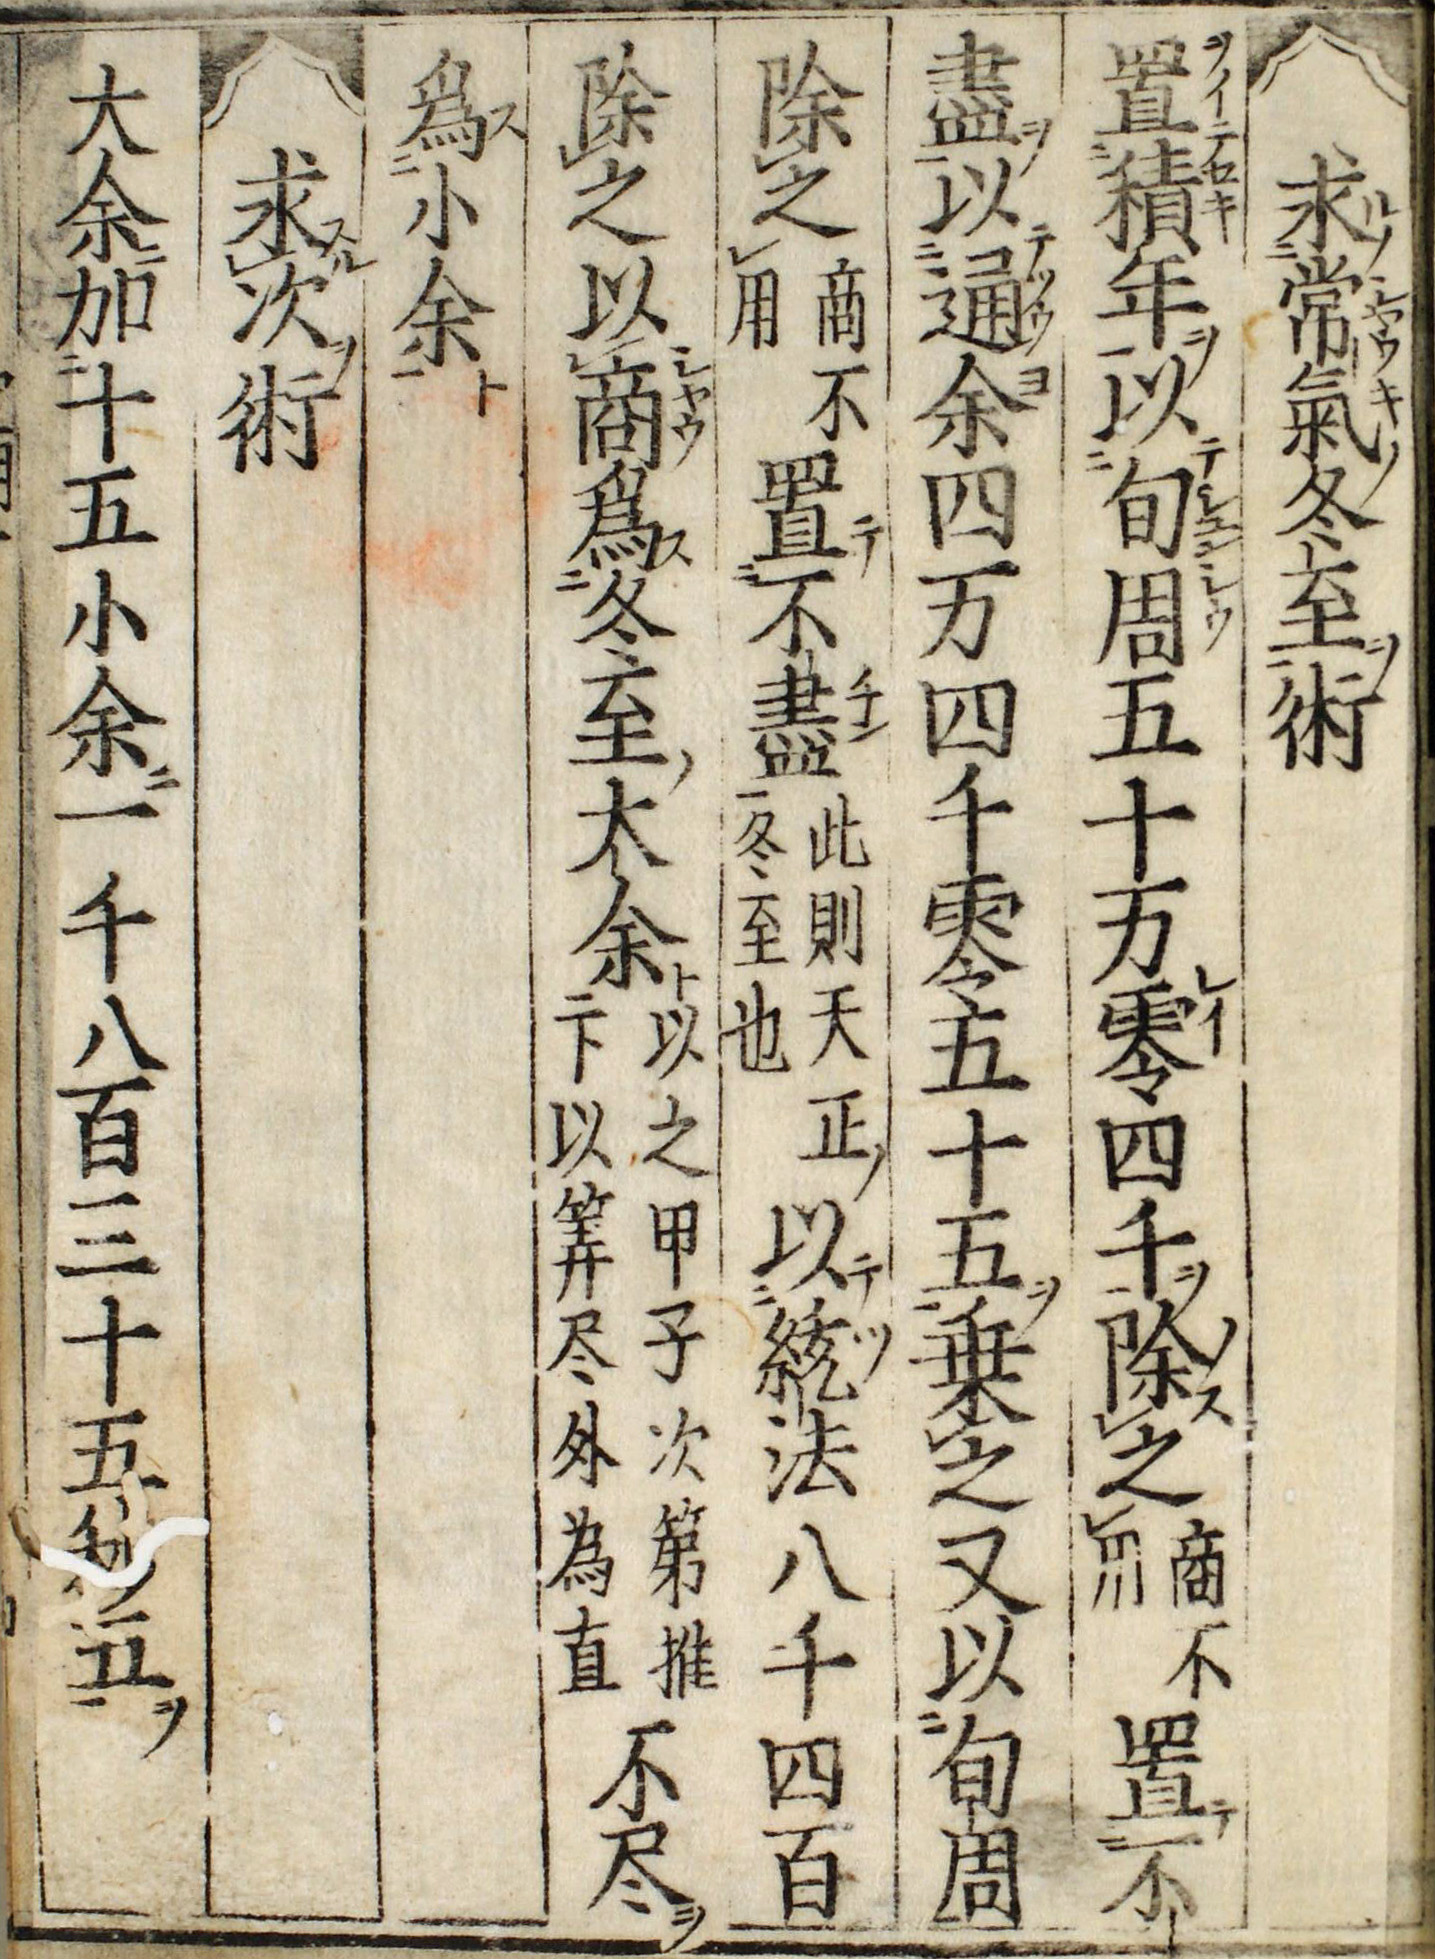 求常氣冬至術
置積年以旬周五十万零四千除之商不用置不
盡以通余四万四千零五十五乗之又以旬周
除之商不用置不盡此則天正冬至也以綂法八千四百
除之以商爲冬至大余以之甲子次第推下以筭尽外為直不尽
爲小余
求次術
大余加十五小余一千八百三十五秒五